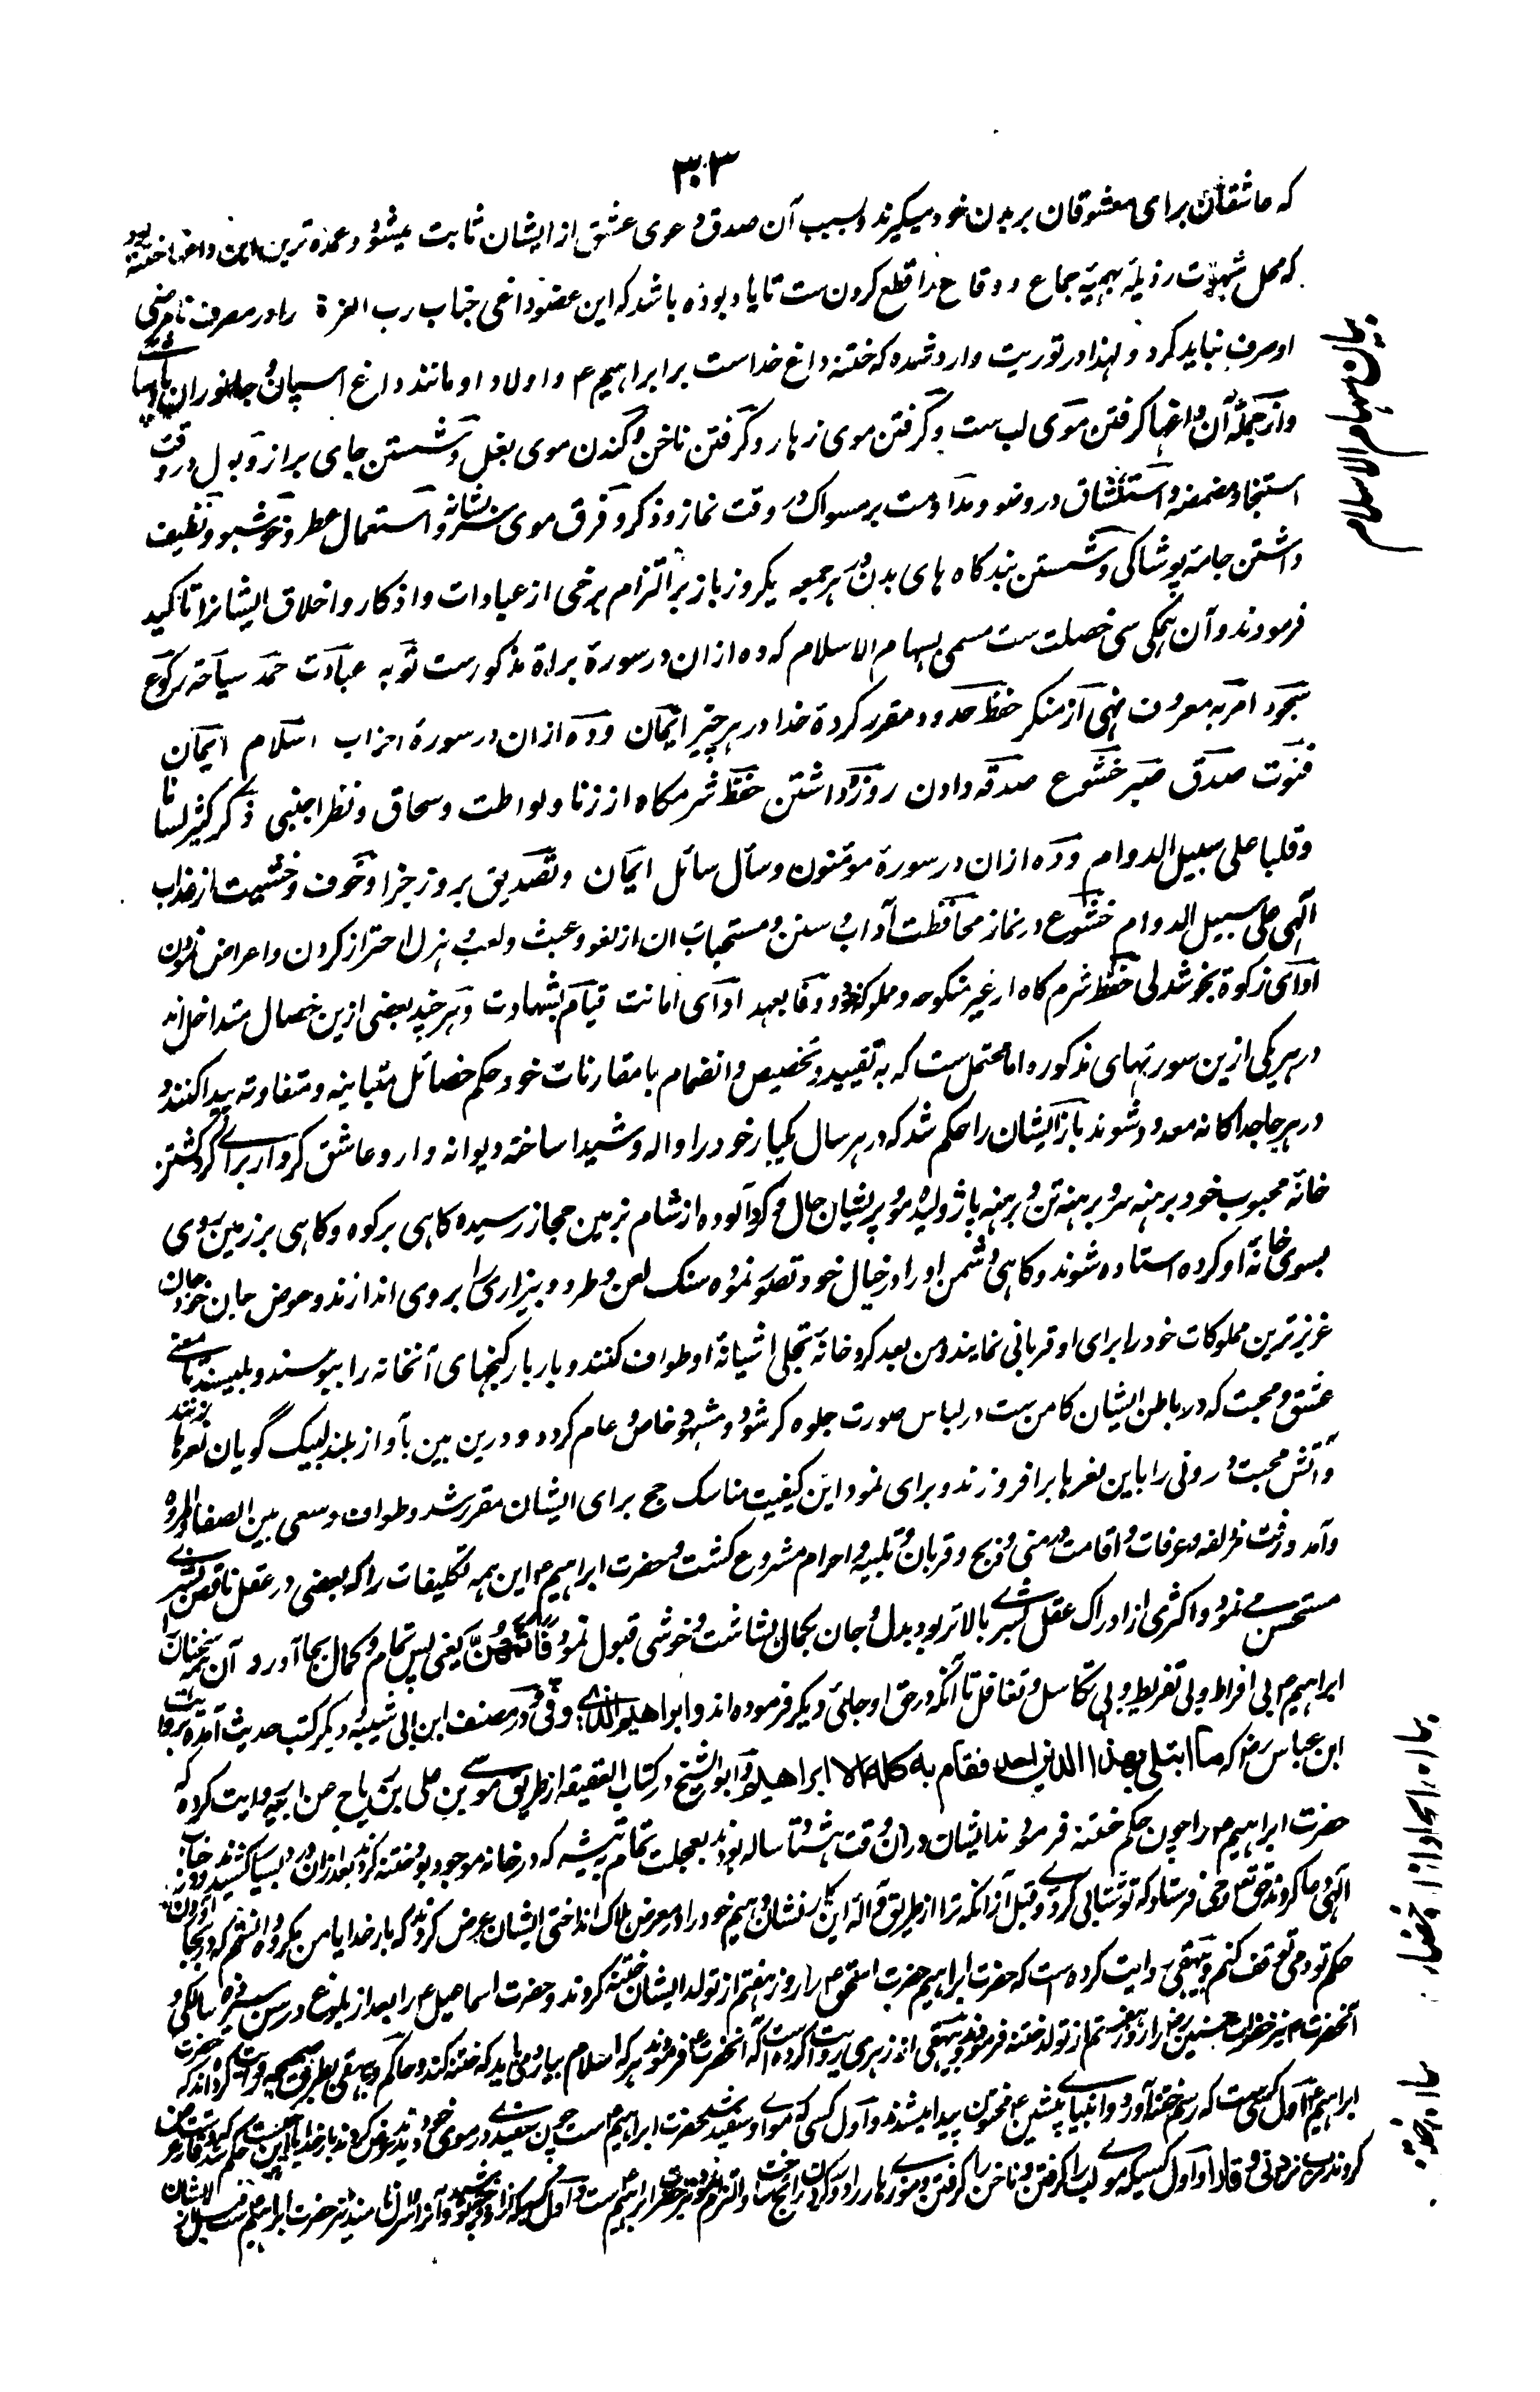 ۳۰۳
که عاشقان برای معشوقان بر بدن خود میگیرند و بسبب آن صدق دعوی عشق از ایشان ثابت میشود و عمده ترین این داغها ختنه بود
که محل شهوت رذیله بهیمیه جماع و وقاع را قطع کردن ست تا یاد بوده باشد که این عضو داغی جناب رب العزة را در مصرف نامرضی
او صرف نباید کرد و لهذا در توریت وارد شده که ختنه داغ خداست بر ابراهیم ع و اولاد او مانند داغ اسپان و جانوران
و از جمله آن داغها گرفتن موی لب ست و گرفتن موی زهار و گرفتن ناخن و کندن موی بغل و شستن جای براز و بول در وقت
استنجا و مضمضه و استنشاق در وضو و مداومت بر مسواک در وقت نماز و ذکر و فرق موی سر بشانه و استعمال عطر و خوشبو و نظیف
داشتن جامهٔ پوشاکی و شستن بندگاه های بدن در هر جمعه یکروز باز بر التزام برخی از عبادات و اذکار و اخلاق ایشانرا تاکید
فرمودند و آن همگی سی خصلت ست مسمی بسهام الاسلام که ده ازان در سورة براة مذکورست توبه عبادت حمد سیاحة رکوع
سجود امر به معروف نهی از منکر حفظ حدود مقرر کردهٔ خدا در هر چیز ایمان و ده ازان در سورهٔ احزاب اسلام ایمان
قنوت صدق صبر خشوع صدقه دادن روزه داشتن حفظ شرمگاه از زنا و لواطت و سحاق و نظر اجنبی ذکر کثیر لسانا
و قلبا علی سبیل الدوام و ده ازان در سورهٔ مؤمنون و سأل سائل ایمان و تصدیق بروز جزا و خوف و خشیت از عذاب
الهی علی سبیل الدوام خشوع در نماز محافظت آداب و سنن و مستحبات ان از لغو و عبث و لعب و هزل احتراز کردن و اعراض نمودن
ادای زکوة بخوشدلی حفظ شرم گاه از غیر منکوحه و مملوکه خود وفا بعهد ادای امانت قیام بشهادت و هر چند بعضی ازین خصال متداخل اند
در هر یکی ازین سورتهای مذکوره اما محتمل ست که به تقیید و تخصیص و انضمام با مقارنات خود حکم خصائل متباینه و متفاوته پیدا کنند و
در هر جا جداگانه معدود شوند باز ایشان را حکم شد که در هر سال یکبار خود را واله و شیدا ساخته دیوانه وار و عاشق کردار برای گرد گشتن
خانهٔ محبوب خود برهنه سر و برهنه تن و برهنه پا ژولیده مو پریشان حال و گرد آلوده از شام بزمین حجاز رسیده گاهی بر کوه و گاهی بر زمین روی
بسوی خانهٔ او کرده استاده شوند و گاهی دشمن او را در خیال خود تصور نموده سنگ لعن و طرد و بیزاری بروی اندازند و عوض جان خود جان
عزیزترین مملوکات خود را برای او قربانی نمایند و من بعد گرد خانهٔ تجلی اشیانهٔ او طواف کنند و بار بار کنجهای آنخانه را ببوسند و بلیسند تا معنی
عشق و محبت که در باطن ایشان کامن ست در لباس صورت جلوه گر شود و مشهود خاص و عام گردد و درین بین بآواز بلند لبیک گویان نعرها بزنند
و آتش محبت درونی را باین نعرها برافروزند و برای نمود این کیفیت مناسک حج برای ایشان مقرر شد و طواف و سعی بین الصفا و المروه
و آمد و رفت مزدلفه و عرفات و اقامت در منی و ذبح و قربان و تلبیه و احرام مشروع گشت و حضرت ابراهیم ع این همه تکلیفات را که بعضی در عقل ناقص بشری
مستحسن می نمود و اکثری از ادراک عقل بشری بالاتر بود بدل و جان بکمال بشاشت و خوشی قبول نمود فَأَتَمَّهُنَّ یعنی پس تمام و کمال بجا آورد آن سخنان را
ابراهیم ع بی افراط و بی تفریط و بی تکاسل و تغافل تا آنکه در حق او جای دیگر فرموده اند و ابراهیم الذی وفی و در مصنف ابن ابی شیبه و دیگر کتب حدیث آمده بروایت
ابن عباس رض که ما ابتلی بهذا الدین احد فقام به کله الا ابراهیم و ابوالشیخ در کتاب العقیقه از طریق موسی بن علی بن رباح عن ابیه روایت کرده که
حضرت ابراهیم ع را چون حکم ختنه فرمودند ایشان دران وقت هشتاد ساله بودند بعجلت تمام به تیشه که در خانه موجود بود ختنه کردند بعد ازان درد بسیار کشیدند و در جناب
الهی دعا کردند حق تعالی وحی فرستاد که تو شتابی کردی و قبل ازانکه ترا از طریق و آلهٔ این کار نشان دهیم خود را در معرض هلاک انداختی ایشان عرض کردند که بار خدایا من مکروه دانستم که در بجا آوردن
حکم تو دمی توقف کنم و بیهقی روایت کرده است که حضرت ابراهیم حضرت اسحق ع را روز هفتم از تولد ایشان ختنه کردند و حضرت اسماعیل ع را بعد از بلوغ در سن سیزده سالگی و
آنحضرت ص نیز حضرات حسنین رض را روز هفتم از تولد ختنه فرمودند و بیهقی از زهری روایت کرده است که آنحضرت ص فرمودند هر که اسلام بیارد می باید که ختنه کند و حاکم و بیهقی بطریق صحیحه روایت کرده اند که حضرت
ابراهیم ع اول کسی ست که رسم ختنه آورد و انبیای پیشین ع مختون پیدا میشدند و اول کسی که موی او سفید شد حضرت ابراهیم ع است چون سفیدی در موی خود دیدند عرض کردند بار خدایا این چیست حکم شد که وقار عرض
کردند رب زدنی وقارا و اول کسیکه موی لب را گرفتن و ناخن را گرفتن و موی زهار را دور کردن رائج ساخت
بیان سهام الاسلام